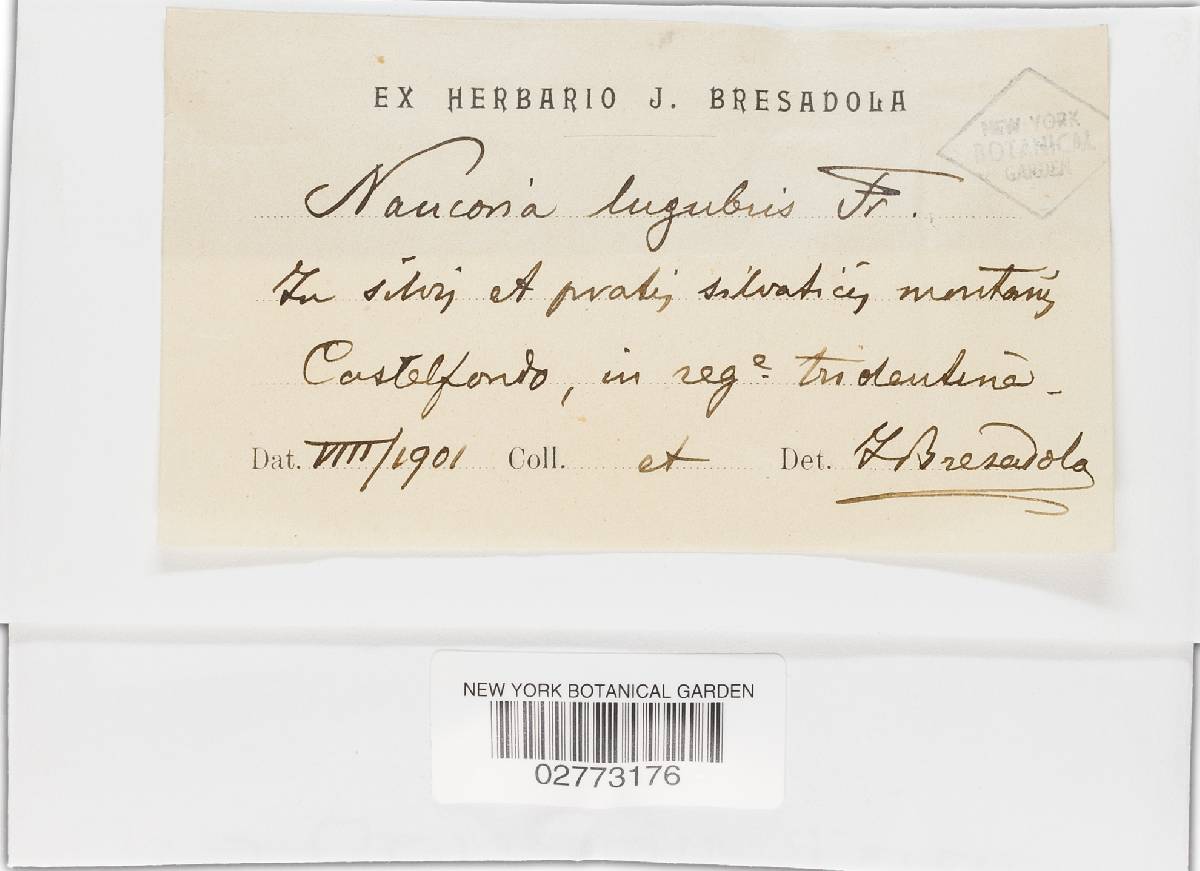 EX HERBARIO J. BRESADOLA
NEW YORK
BOTANICAL
GARDEN
Naucoria lugubris Fr.
In silvis et pratis silvaticis montanis
Castelfondo, in reg.e tridentina.
Dat. VIII/1901 Coll. et Det. J Bresadola
NEW YORK BOTANICAL GARDEN
02773176